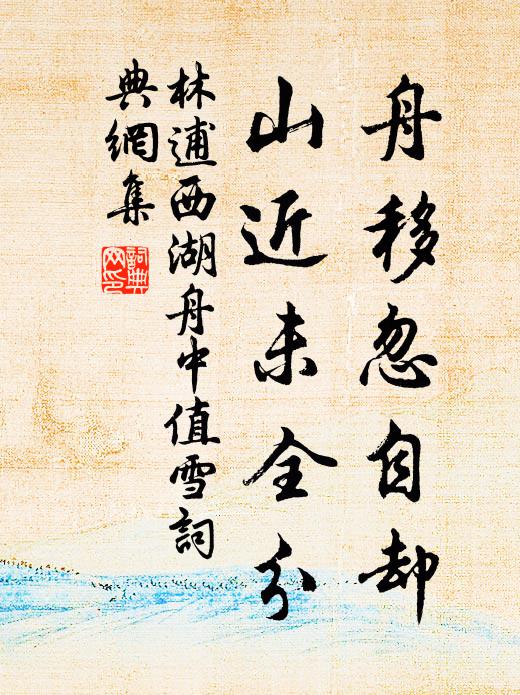 舟移忽自却
山近未全分
林逋西湖舟中值雪詞
典網集
詞典
网印